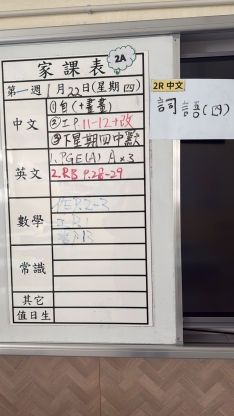 家課表
2A
第一週 1月22日(星期四)
中文
①自(+畫畫)
②工P.11-12+改
③下星期四中默
英文
1. PGE(A) A×3
2. RB P.28-29
數學
常識
其它
值日生
2R 中文
詞語(四)